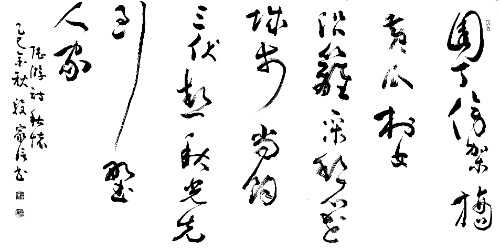 園丁傍架摘
黄瓜村女
沿籬采碧花
城市尚餘
三伏熱秋光先
到野
人家
陆游詩秋懷
乙巳年秋段家書